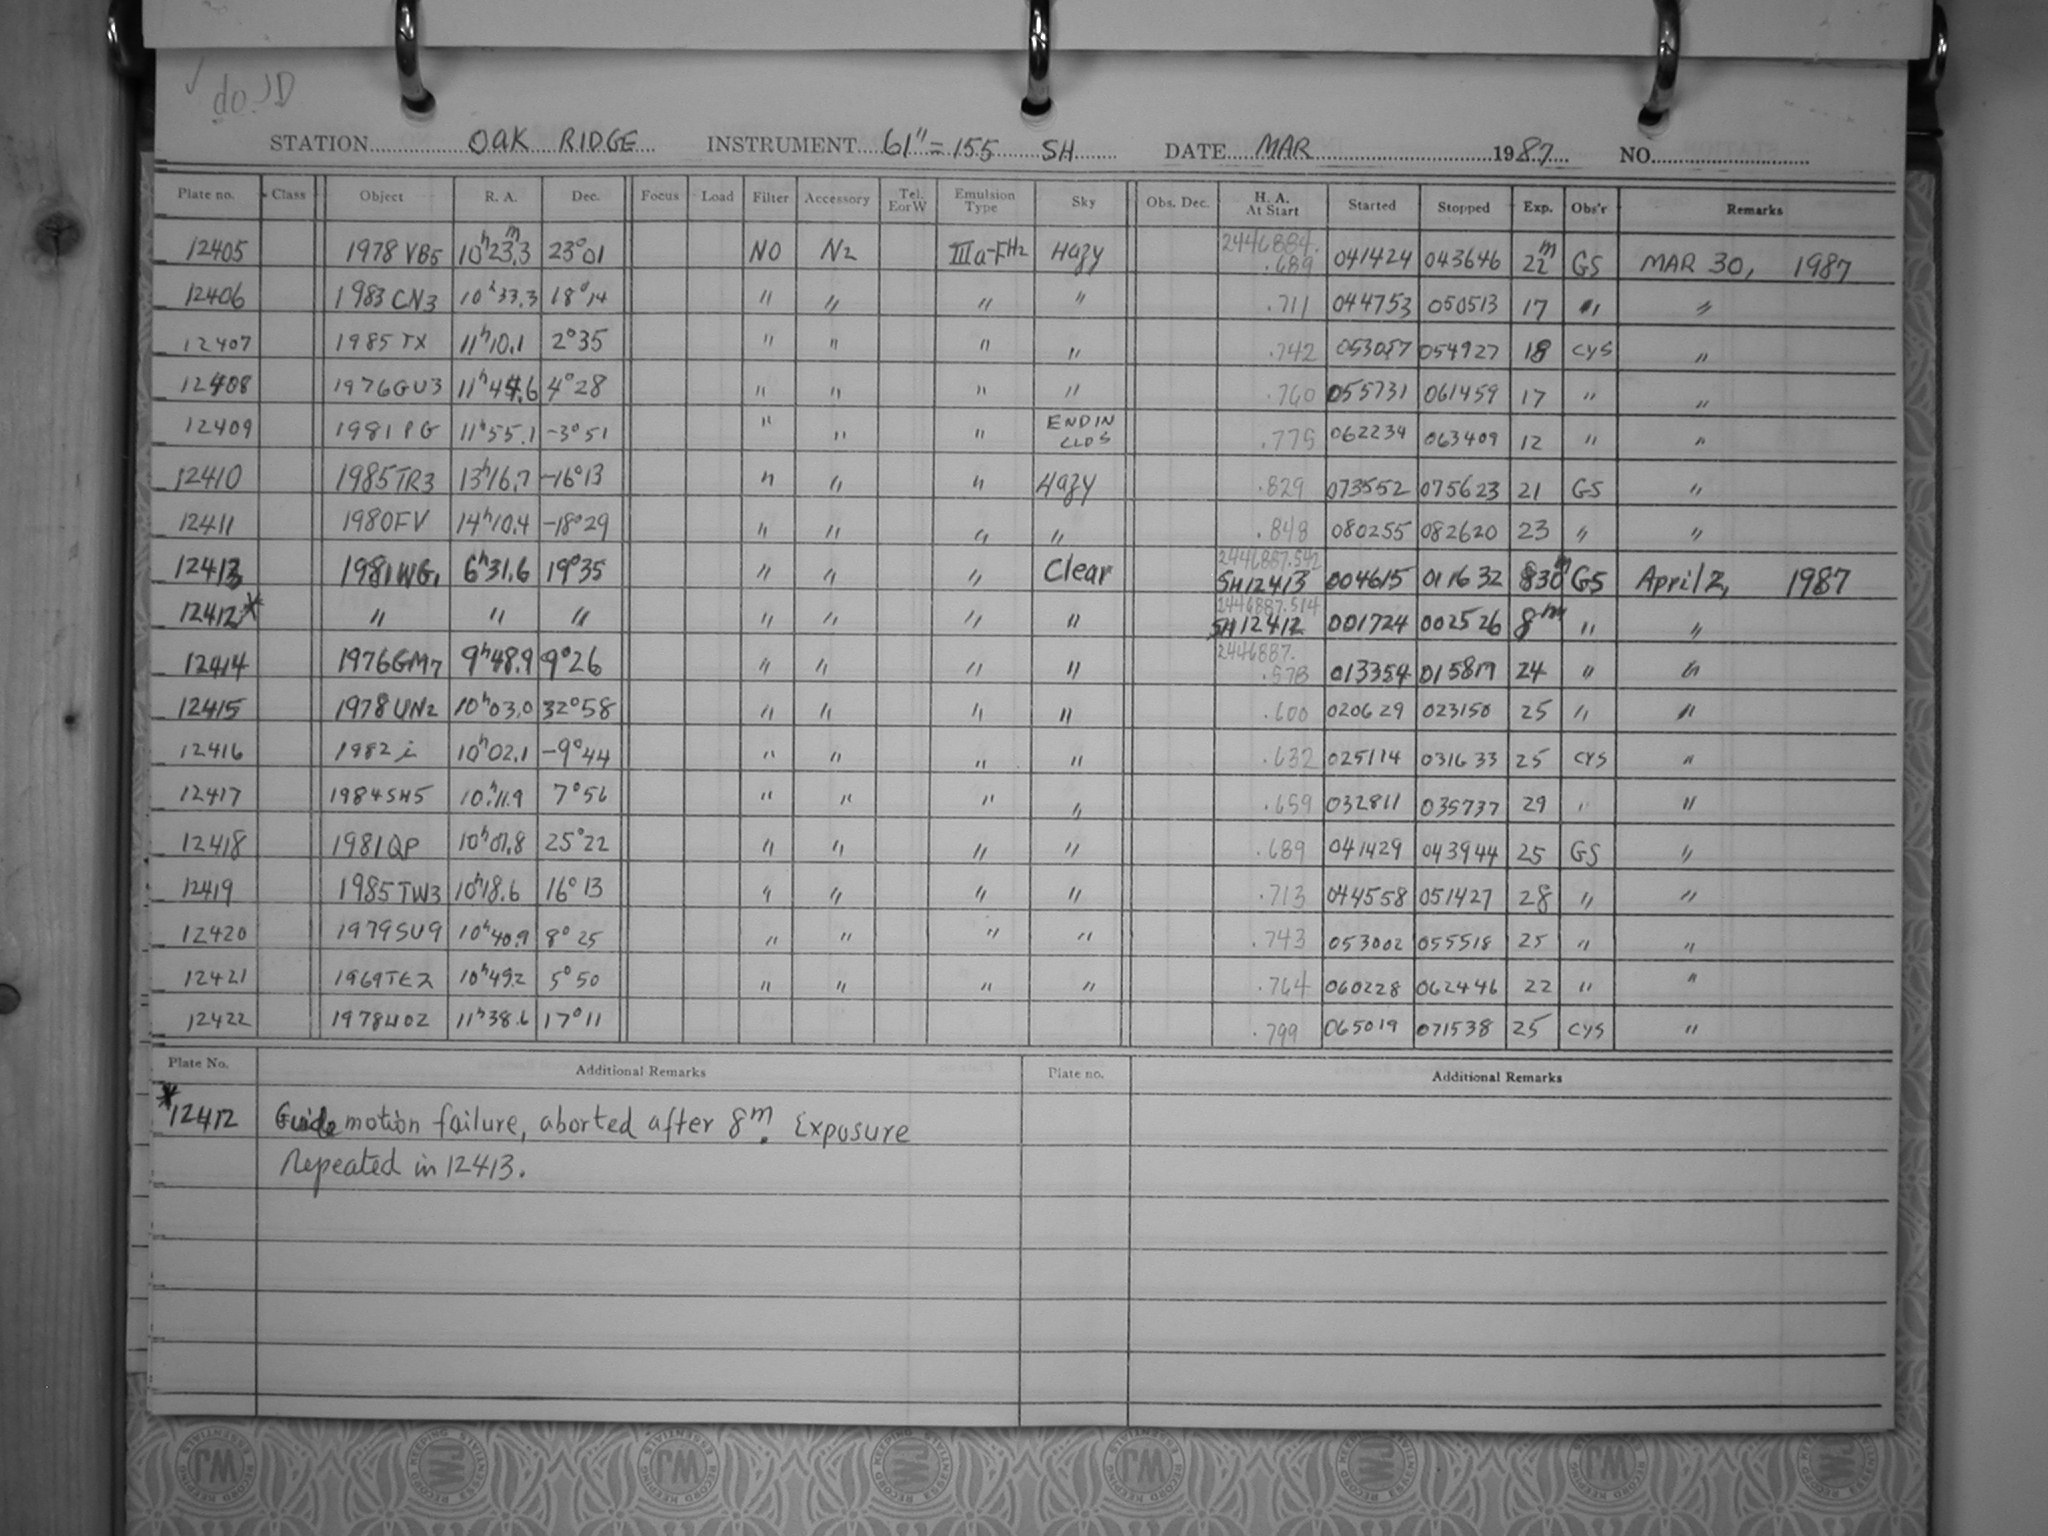 ✓ do JD
STATION OAK RIDGE INSTRUMENT 61" = 155 SH DATE MAR 1987 NO.
Plate no. Class Object R. A. Dec. Focus Load Filter Accessory Tel. E or W Emulsion Type Sky Obs. Dec. H. A. At Start Started Stopped Exp. Obs'r Remarks
12405 1978 VB5 10h23m.3 23°01 NO N2 IIIa-F H2 Hazy 2446884. .689 041424 043646 22m GS MAR 30, 1987
12406 1983 CN3 10h33.3 18°14 " " " " .711 044753 050513 17 " "
12407 1985 TX 11h10.1 2°35 " " " " .742 053087 054927 18 CYS "
12408 1976GU3 11h44.6 4°28 " " " " .760 055731 061459 17 " "
12409 1981 PG 11h55.1 -3°51 " " " END IN CLDS .775 062234 063409 12 " "
12410 1985TR3 13h16.7 -16°13 " " " Hazy .829 073552 075623 21 GS "
12411 1980FV 14h10.4 -18°29 " " " " .848 080255 082620 23 " "
12413 1981WG1 6h31.6 19°35 " " " Clear 2446887.542 SH12413 004615 011632 30m GS April 2, 1987
12412* " " " " " " " 2446887.514 SH12412 001724 002526 8m " "
12414 1976GM7 9h48.9 9°26 " " " " 2446887. .578 013354 015817 24 " "
12415 1978UN2 10h03.0 32°58 " " " " .600 020629 023150 25 " "
12416 1982 i 10h02.1 -9°44 " " " " .632 025114 031633 25 CYS "
12417 1984SH5 10h11.9 7°56 " " " " .659 032811 035737 29 " "
12418 1981QP 10h07.8 25°22 " " " " .689 041429 043944 25 GS "
12419 1985TW3 10h18.6 16°13 " " " " .713 044558 051427 28 " "
12420 1979SU9 10h40.9 8°25 " " " " .743 053002 055518 25 " "
12421 1969TE2 10h49.2 5°50 " " " " .764 060228 062446 22 " "
12422 11h38.6 17°11 .799 065019 071538 25 CYS "
Plate No. Additional Remarks Plate no. Additional Remarks
*12412 Guide motion failure, aborted after 8m. Exposure
repeated in 12413.